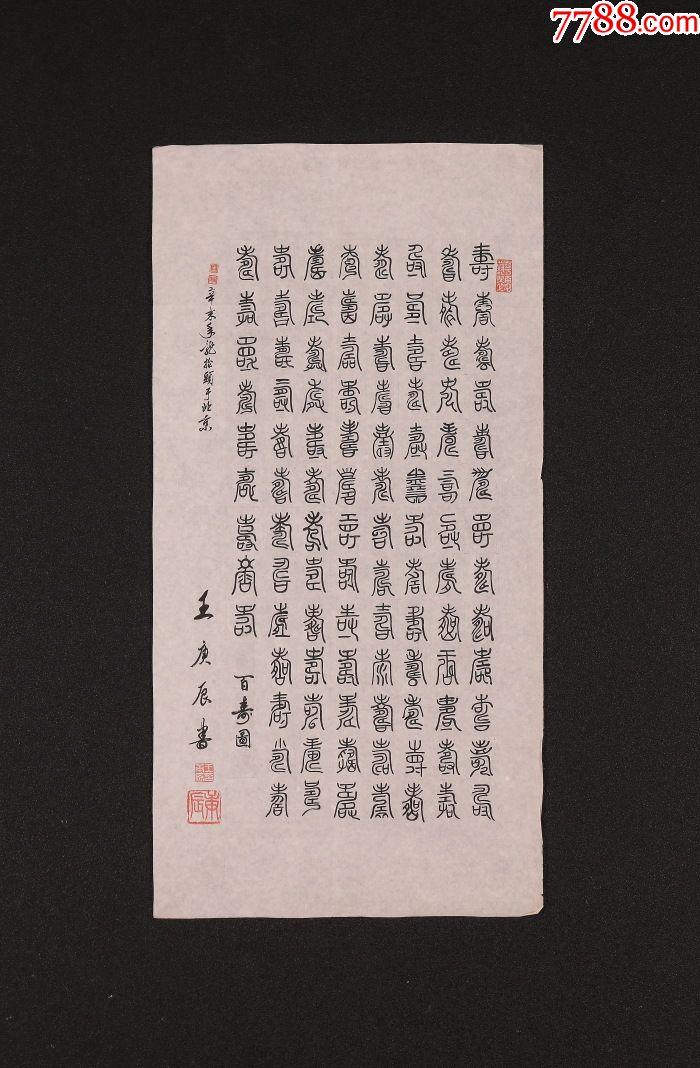 7788.com
壽壽壽壽壽壽壽壽壽壽壽壽壽
壽壽壽壽壽壽壽壽壽壽壽壽壽
壽壽壽壽壽壽壽壽壽壽壽壽壽
壽壽壽壽壽壽壽壽壽壽壽壽壽
壽壽壽壽壽壽壽壽壽壽壽壽壽
壽壽壽壽壽壽壽壽壽壽壽壽壽
壽壽壽壽壽壽壽壽壽壽壽壽壽
壽壽壽壽壽壽壽壽壽
百壽圖
辛未年龍抬頭于北京
王庚辰書
庚辰